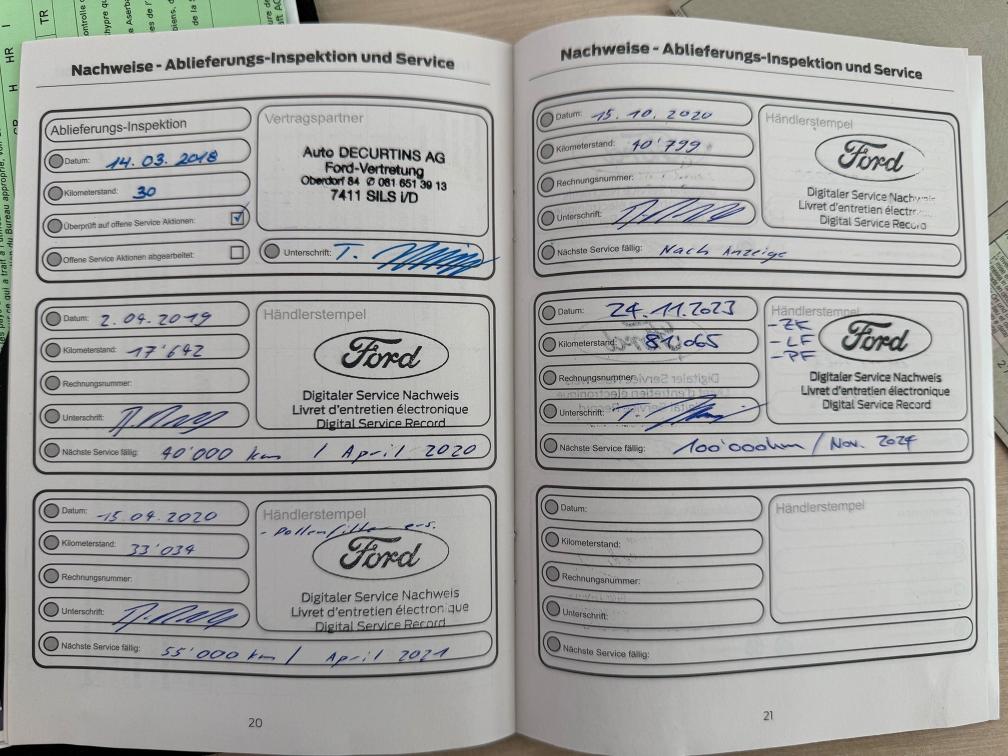 Nachweise - Ablieferungs-Inspektion und Service
Ablieferungs-Inspektion
Datum: 14.03.2018
Kilometerstand: 30
Überprüft auf offene Service Aktionen:
Offene Service Aktionen abgearbeitet:
Vertragspartner
Auto DECURTINS AG
Ford-Vertretung
Oberdorf 84 ✆ 081 651 39 13
7411 SILS I/D
Unterschrift: T.
Datum: 2.04.2019
Kilometerstand: 17'642
Rechnungsnummer:
Unterschrift:
Händlerstempel
Ford
Digitaler Service Nachweis
Livret d'entretien électronique
Digital Service Record
Nächste Service fällig: 40'000 km / April 2020
Datum: 15.04.2020
Kilometerstand: 33'034
Rechnungsnummer:
Unterschrift:
Händlerstempel
- Pollenfilter ers.
Ford
Digitaler Service Nachweis
Livret d'entretien électronique
Digital Service Record
Nächste Service fällig: 55'000 km / April 2021
20
Nachweise - Ablieferungs-Inspektion und Service
Datum: 15.10.2020
Kilometerstand: 40'799
Rechnungsnummer:
Unterschrift:
Händlerstempel
Ford
Digitaler Service Nachweis
Livret d'entretien électr
Digital Service Record
Nächste Service fällig: Nach Anzeige
Datum: 24.11.2023
Kilometerstand: 81'065
Rechnungsnummer:
Unterschrift:
Händlerstempel
- ZK
- LF
- PF
Ford
Digitaler Service Nachweis
Livret d'entretien électronique
Digital Service Record
Nächste Service fällig: 100'000km / Nov. 2024
Datum:
Kilometerstand:
Rechnungsnummer:
Unterschrift:
Händlerstempel
Nächste Service fällig:
21
TR
HR
H